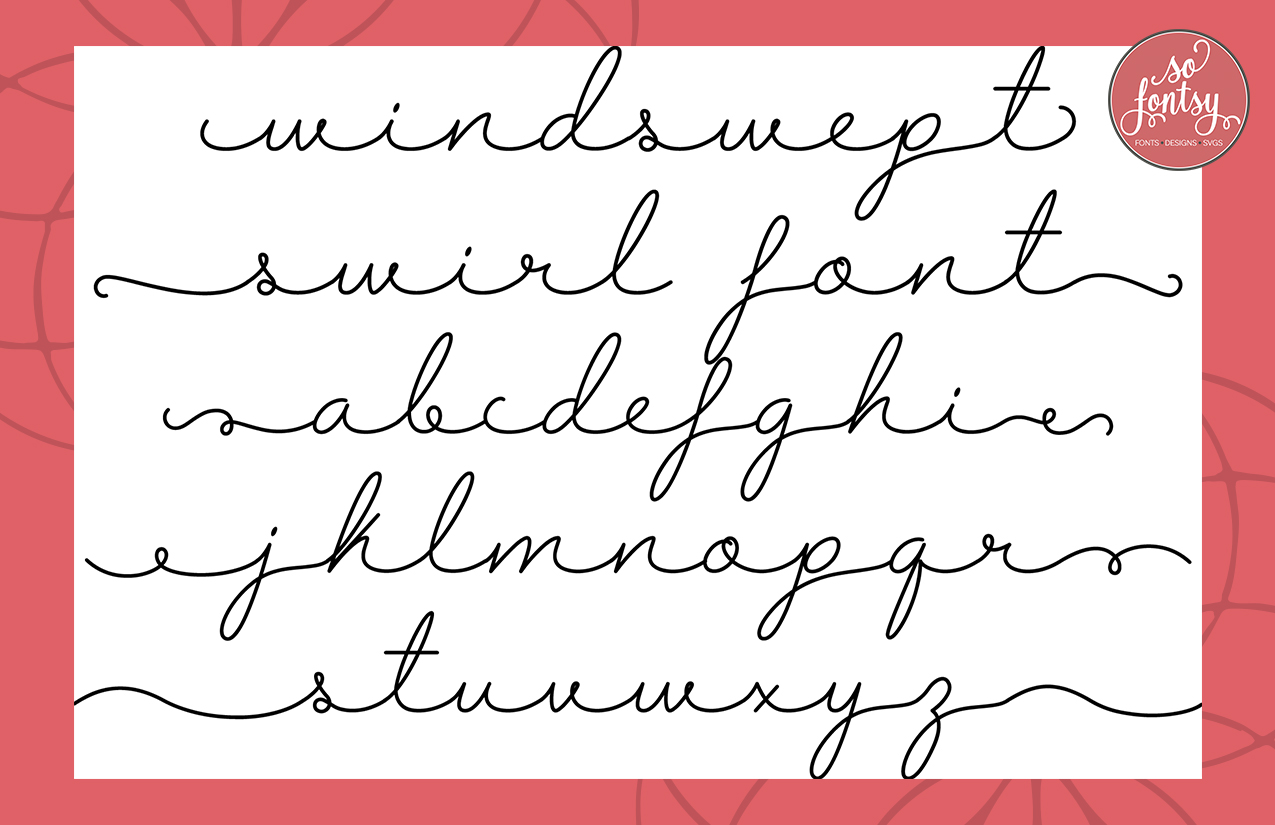 windswept
swirl font
abcdefghi
jklmnopqr
stuvwxyz
so
fontsy
FONTS • DESIGNS • SVGS